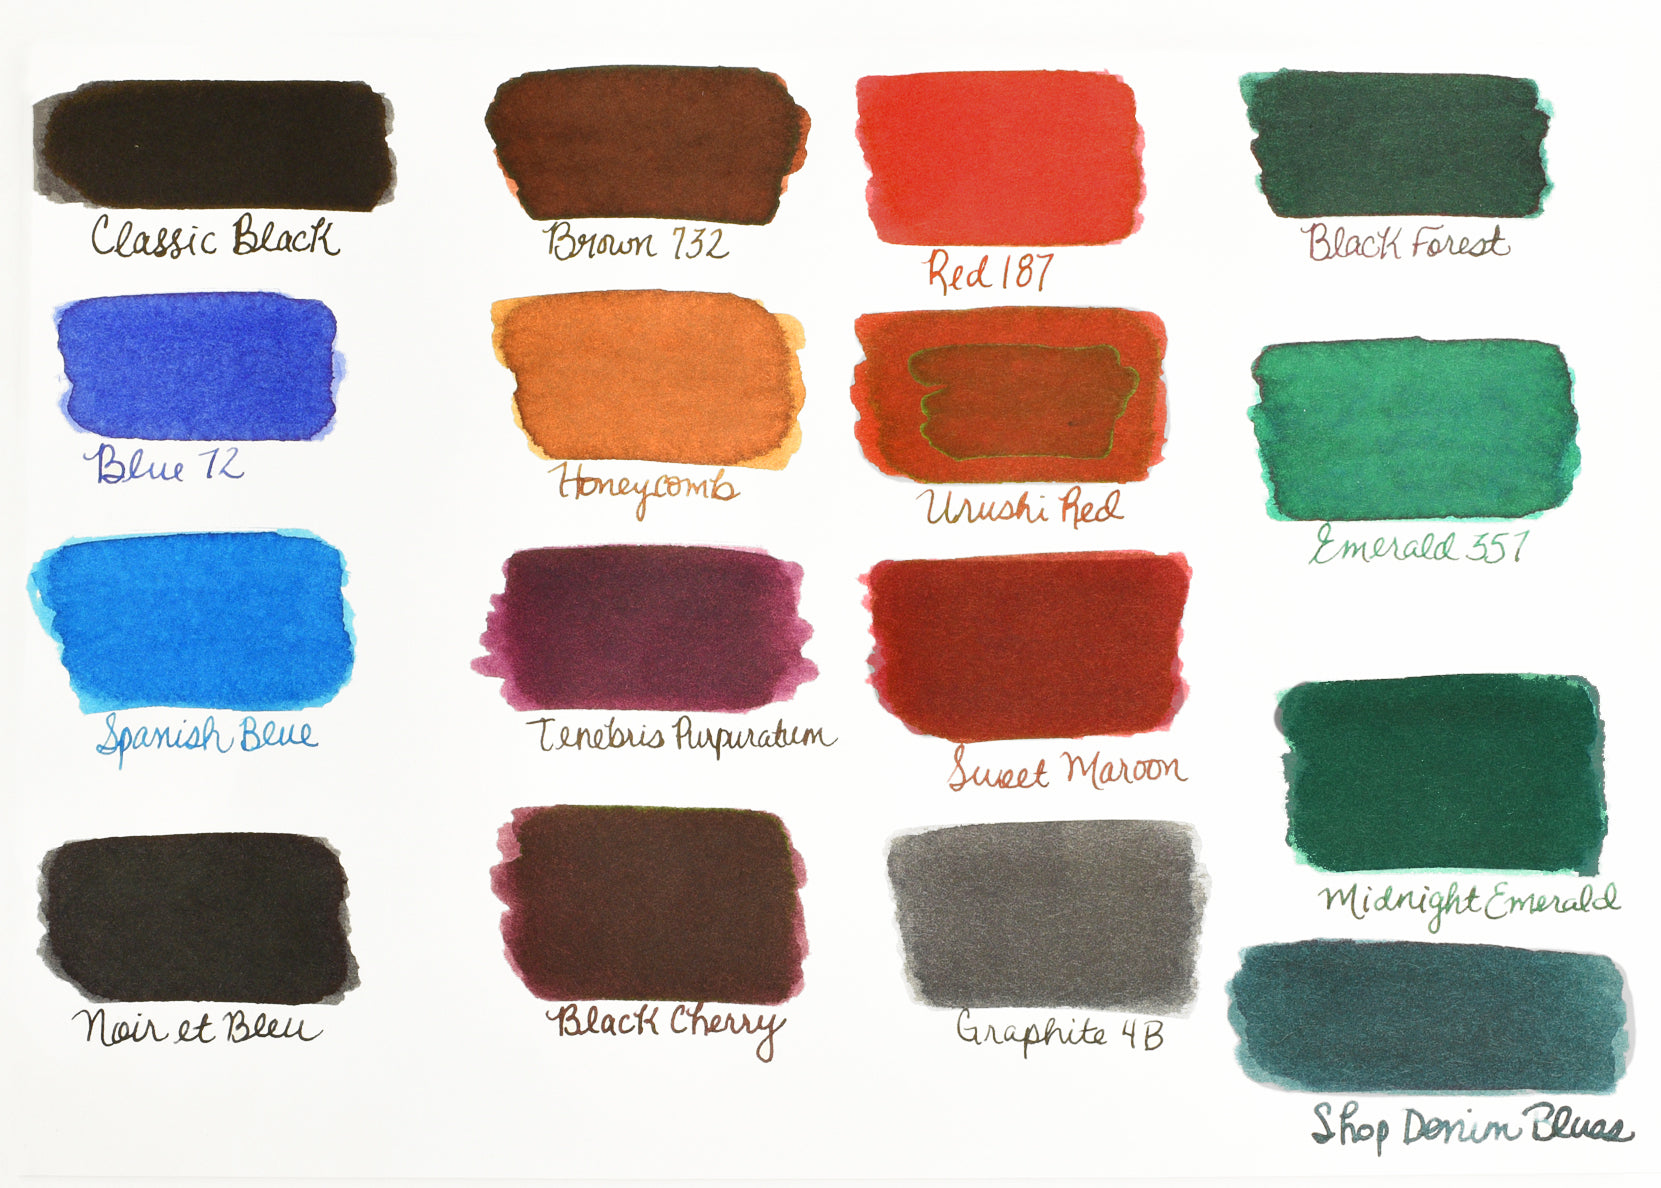 Classic Black
Brown 732
Red 187
Black Forest
Blue 72
Honeycomb
Urushi Red
Emerald 357
Spanish Blue
Tenebris Purpuratum
Sweet Maroon
Midnight Emerald
Noir et Bleu
Black Cherry
Graphite 4B
Shop Denim Blues